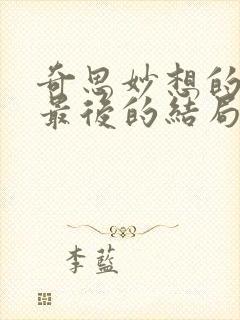 奇思妙想的
最後的結局
李藍